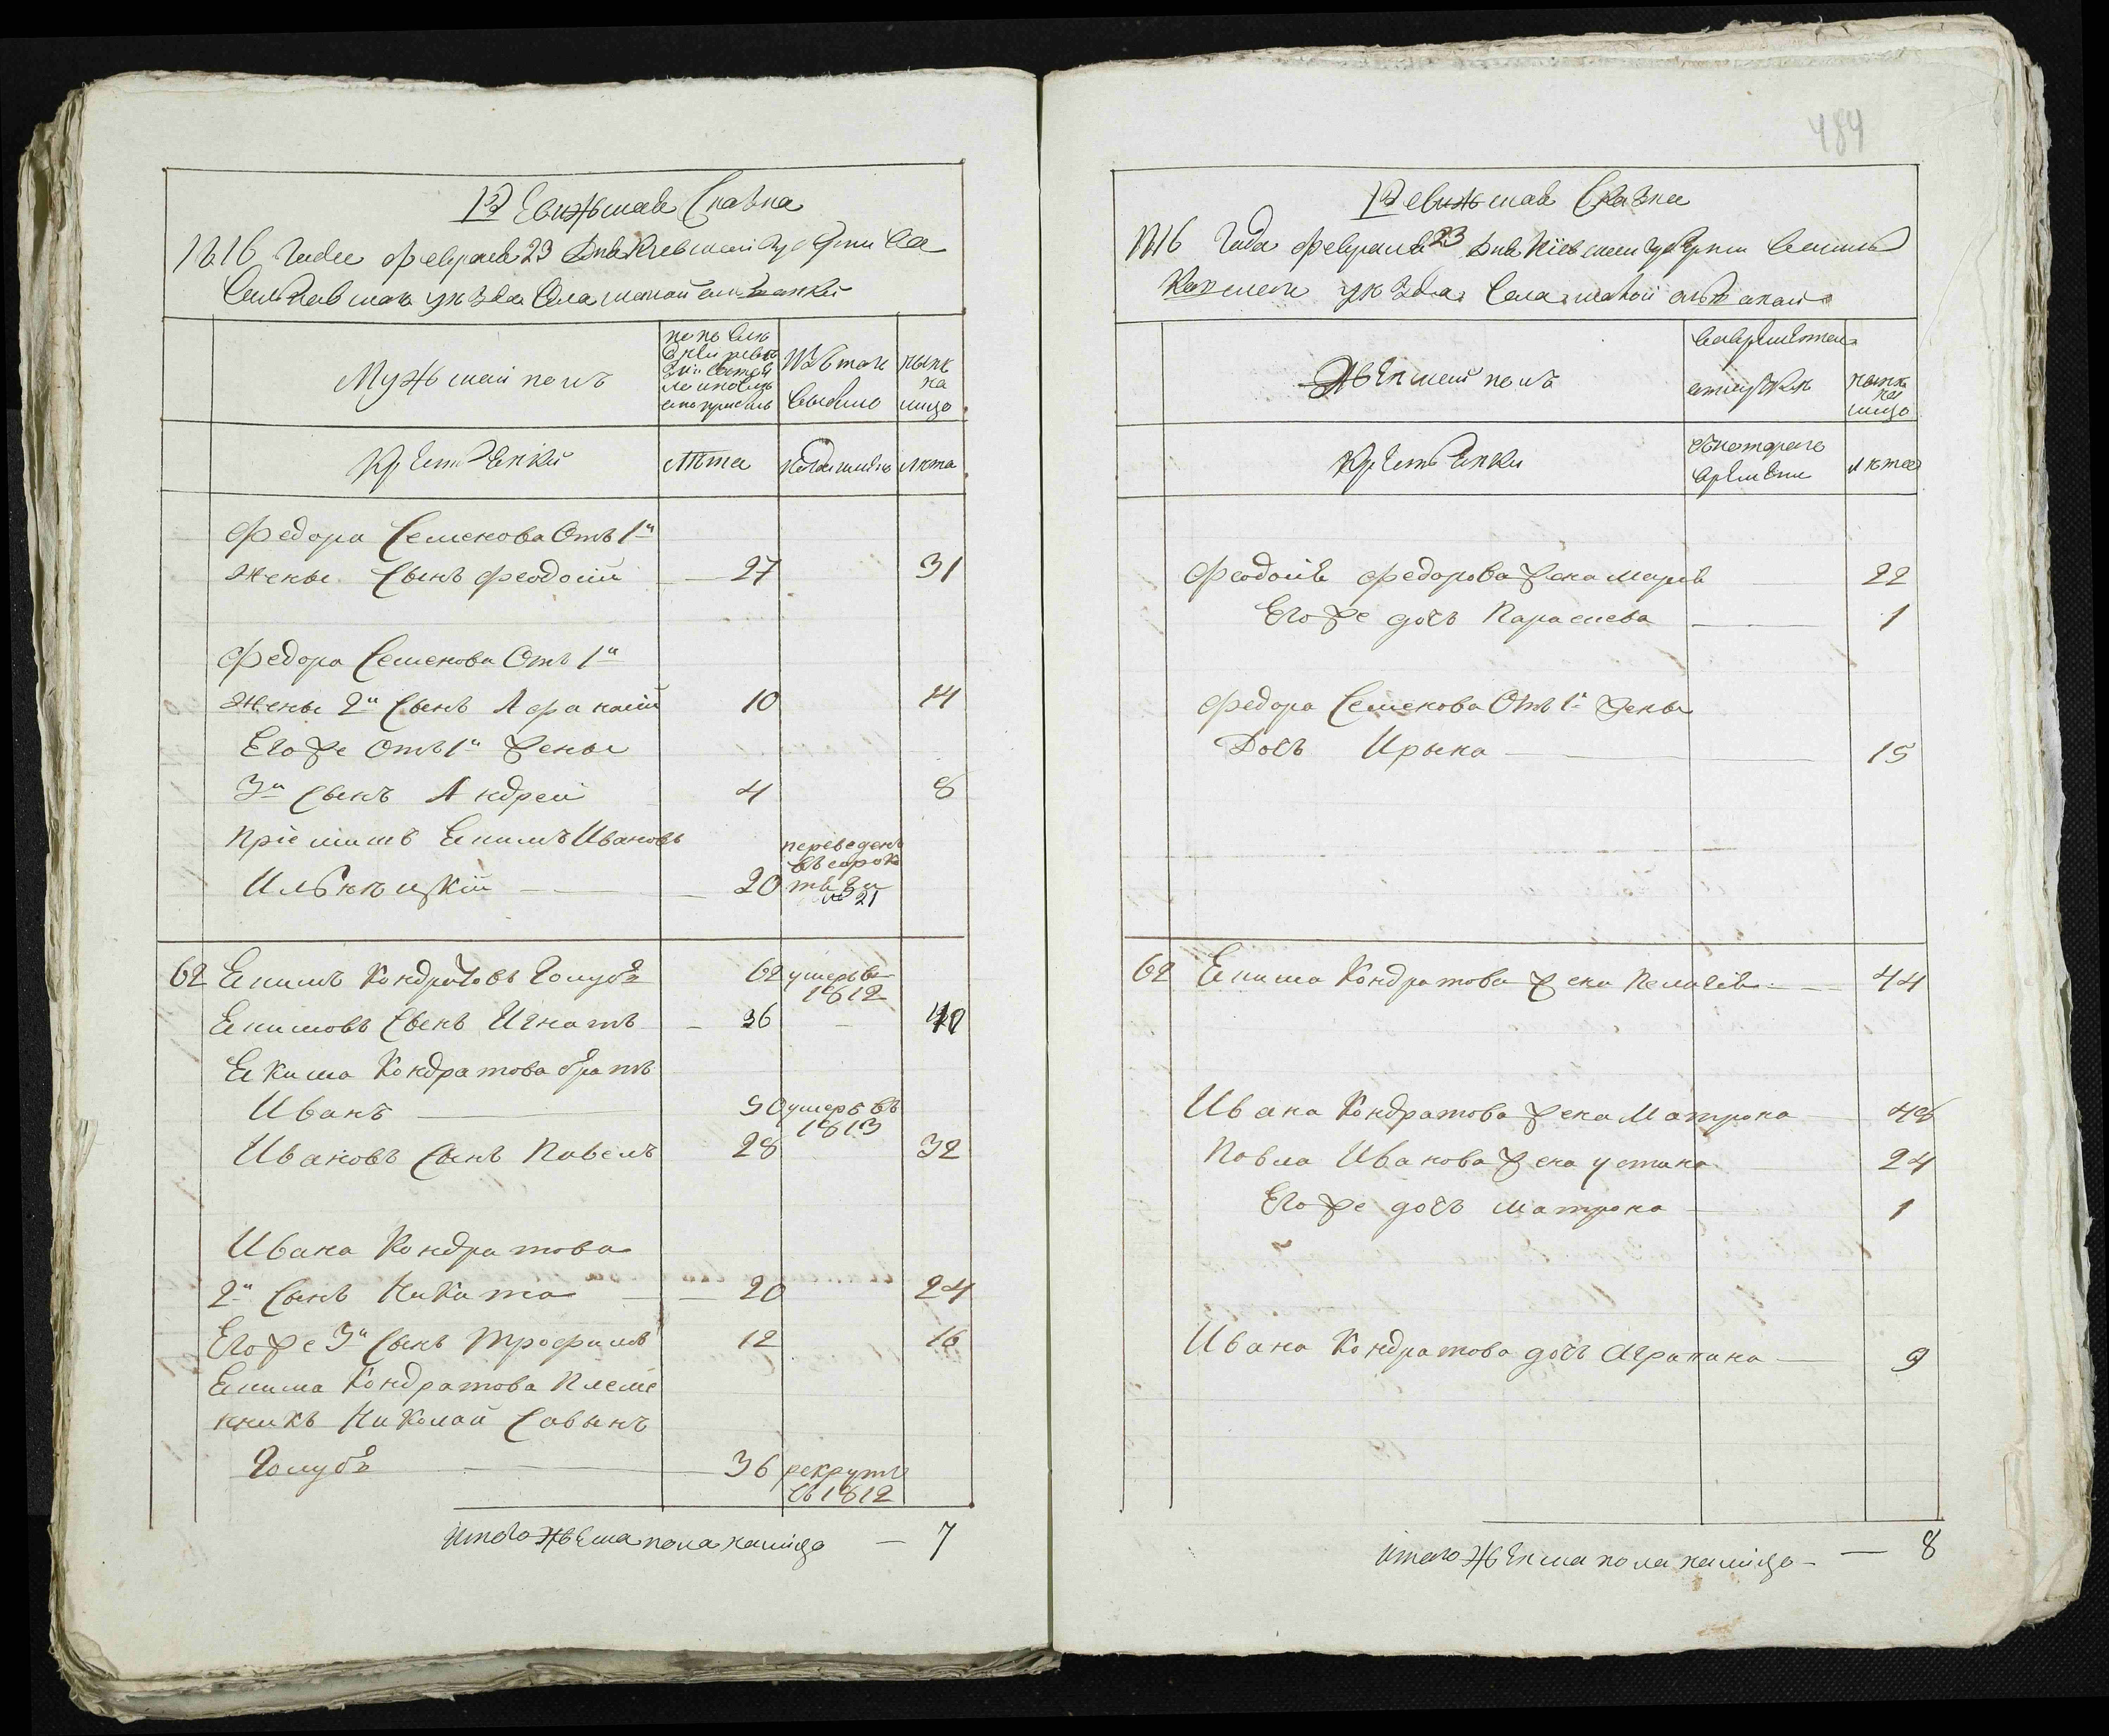 Ревижская Сказка
1816 Года февраля 23 Дня Киевской губернии Ва
сильковскаго уезда Села
Мужской полъ
Изъ того
выбыло
ныне
на
лицо
Крестьяне
Лета
Лета
Федора Семенова Отъ 1й
Жены Сынъ Феодосий 27 31
Федора Семенова Отъ 1й
Жены 2й Сынъ Афанасий 10 14
Его же Отъ 1й жены
3й Сынъ Андрей 4 8
Пріемышъ Екимъ Ивановъ
переведенъ
въ
20
№ 21
62 Екимъ Кондратовъ Голубъ 62 умеръ въ
1812
Екимовъ Сынъ Игнатъ 36 40
Екима Кондратова братъ
Иванъ 50 умеръ въ
1813
Ивановъ Сынъ Павелъ 28 32
Ивана Кондратова
2й Сынъ Никита 20 24
Его же 3й Сынъ Трофимъ 12 16
Екима Кондратова Племе
нникъ Николай Савынъ
Голубъ 36 рекрутъ
въ 1812
Итого пола налицо 7
484
Ревижская Сказка
1816 Года февраля 23 Дня Кіевской губерніи Василь
ковскаго уезда Села
Женской полъ
отлучке
ныне
на
лицо
Крестьянки
съ котораго
времени
Лета
Феодосия Федорова жена Мария 22
Его же дочъ Параскева 1
Федора Семенова Отъ 1й жены
Дочъ Ирына 15
62 Екима Кондратова жена Пелагия 44
Ивана Кондратова жена Матрона 48
Павла Иванова жена устина 24
Его же дочъ Матрона 1
Ивана Кондратова дочъ Аграпина 9
Итого Женска пола налицо 8